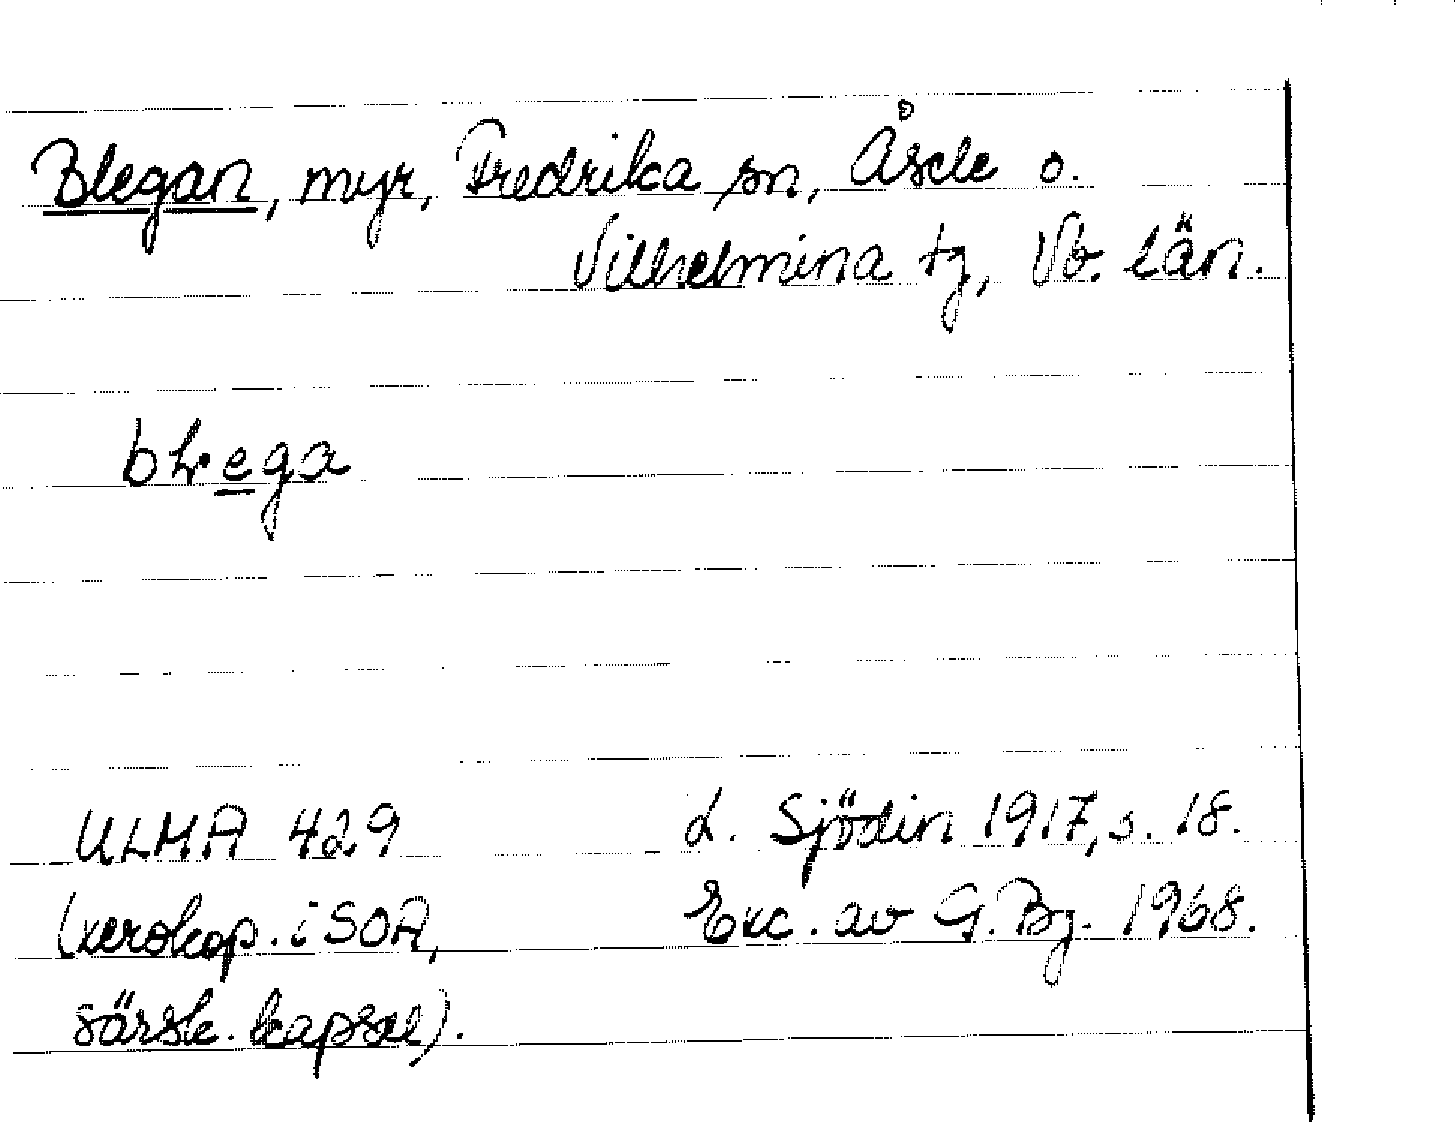 Blegan, myr, Fredrika sn, Åsele o.
Vilhelmina tg, Vb. län.
blega
ULMA 429
L. Sjödin 1917, s. 18.
(xerokop. i SOA,
Exc. av G. Bg. 1968.
särsk. kapsel).